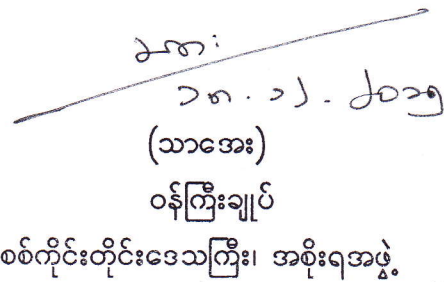 ၁၈.၁၂.၂၀၁၅
(သာအေး)
ဝန်ကြီးချုပ်
စစ်ကိုင်းတိုင်းဒေသကြီး၊ အစိုးရအဖွဲ့